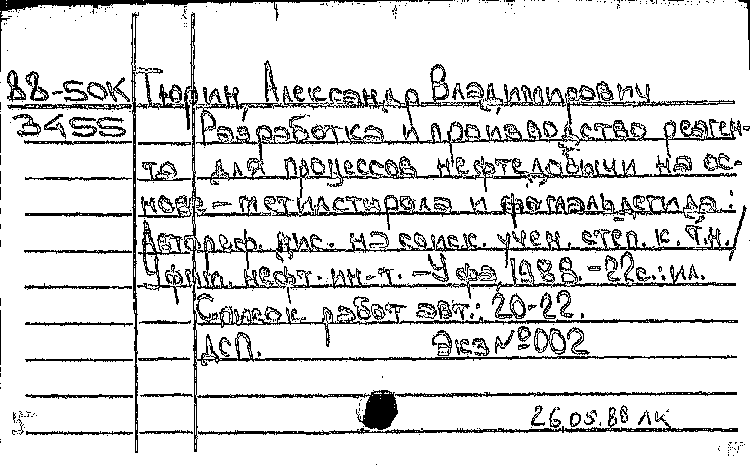 88-50К Тюрин, Александр Владимирович
3455 Разработка и производство реаген-
та для процессов нефтедобычи на ос-
нове -метилстирола и формальдегида :
Автореф. дис. на соиск. учен. степ. к. т.н. /
Уфим. нефт. ин-т. -Уфа, 1988. -22с.: ил.
Список работ авт.: 20-22.
ДСП. Экз №002
26.05.88 ЛК